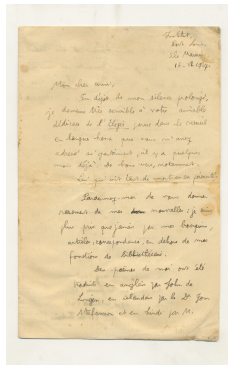 Institut,
Port Louis,
Ile Maurice
Mon cher ami,
En dépit de mon silence prolongé,
je demeure très sensible à votre aimable
dédicace de l'Elégie, parue dans le recueil
en langue que vous m'avez
adressé si gentiment, il y a quelques
mois déjà. De bons vers, notamment,
Pardonnez-moi de vous donner
rarement de mes nouvelles: je suis
plus pris que jamais par mes besognes,
articles, correspondance, en dehors de mes
fonctions de bibliothécaire.
Des poèmes de moi ont été
traduits en anglais par John de
Lingen, en islandais par le Dr Jon
Stefansson et en hindi par M.